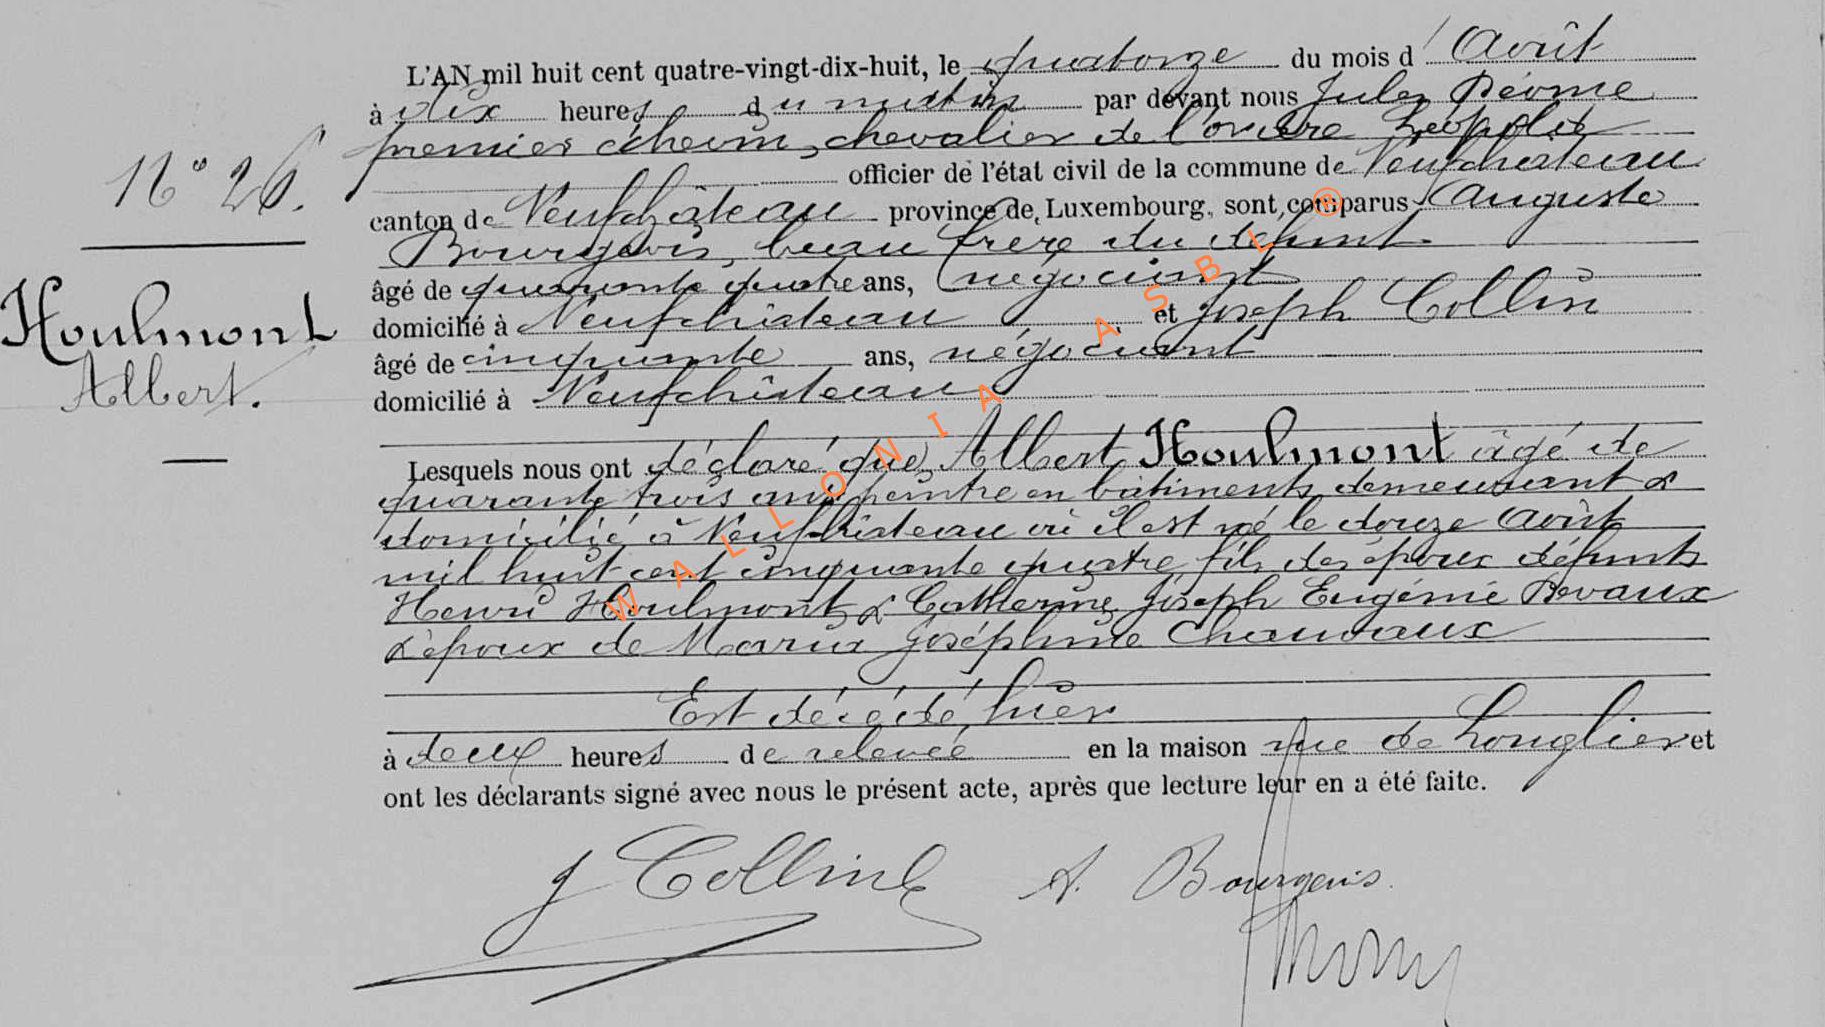 N° 26.
Houlmont
Albert.
L'AN mil huit cent quatre-vingt-dix-huit, le quatorze du mois d' Août
à dix heures du matin par devant nous Jules
premier échevin, chevalier de l'ordre Léopold
officier de l'état civil de la commune de Neufchâteau
canton de Neufchâteau province de Luxembourg, sont comparus Auguste
Bourgeois, beau frère du défunt
âgé de quarante quatre ans, négociant
domicilié à Neufchâteau et Joseph Collin
âgé de cinquante ans, négociant
domicilié à Neufchâteau
Lesquels nous ont déclaré que Albert Houlmont âgé de
quarante trois ans peintre en bâtiments demeurant &
domicilié à Neufchâteau où il est né le douze Août
mil huit cent cinquante quatre fils des époux défunts
Henri Houlmont & Catherine Joseph Eugénie Devaux
& époux de Maria Joséphine Chauvaux
Est décédé hier
à deux heures de relevée en la maison rue de Longlier et
ont les déclarants signé avec nous le présent acte, après que lecture leur en a été faite.
J Collin A. Bourgeois.
WALLONIA ASBL ®